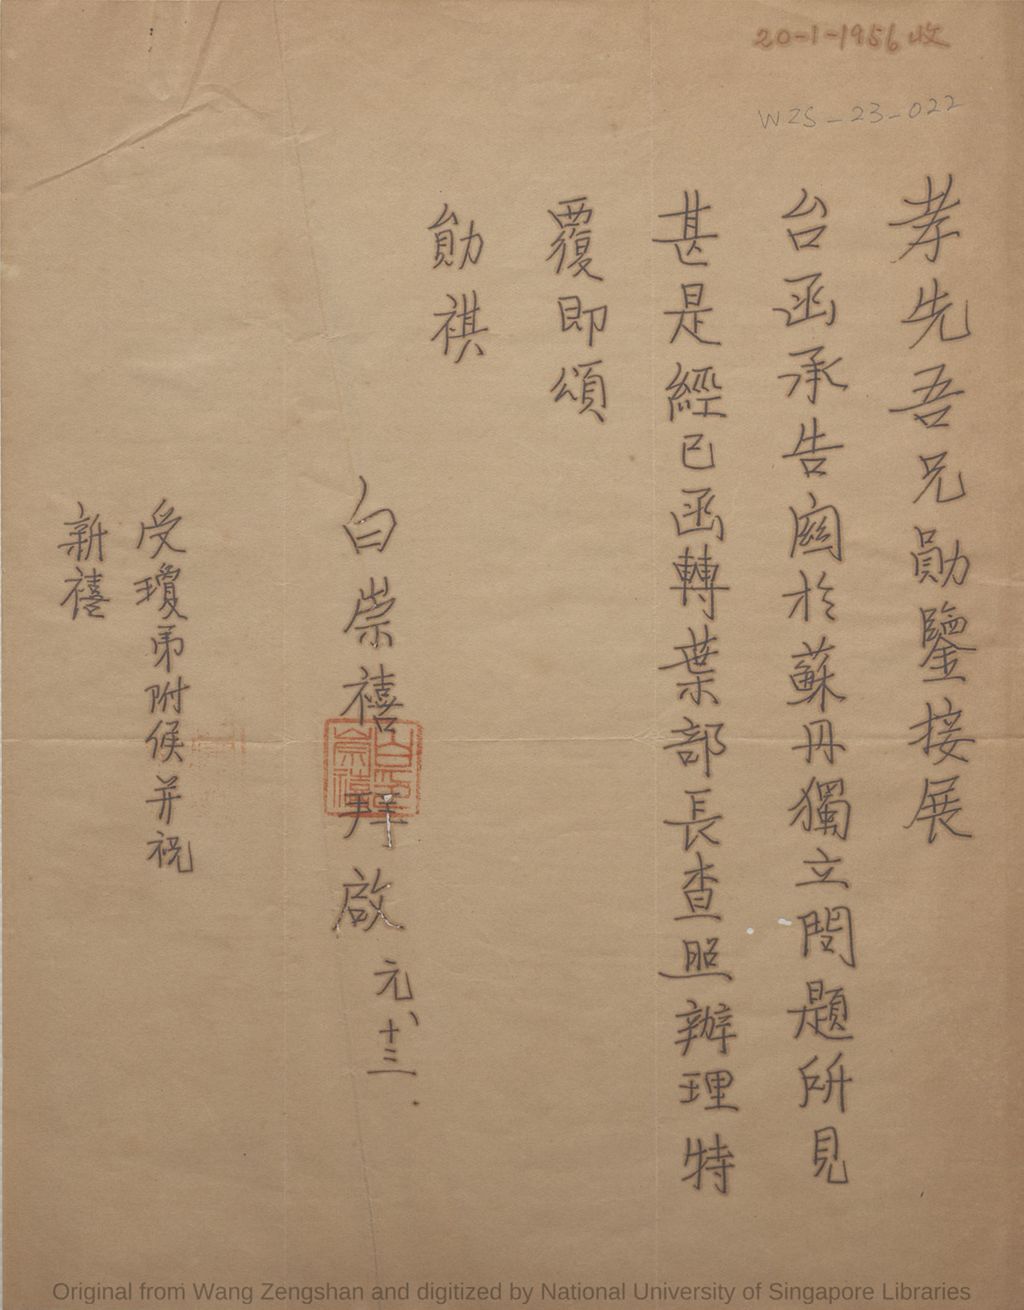 20-1-1956 收
WZS-23-022
孝先吾兄勛鑒接展
台函承告關於蘇丹獨立問題所見
甚是經已函轉葉部長查照辦理特
覆即頌
勛祺
白崇禧拜啟 元、十三.
受瓊弟附候并祝
新禧
白崇禧印
Original from Wang Zengshan and digitized by National University of Singapore Libraries